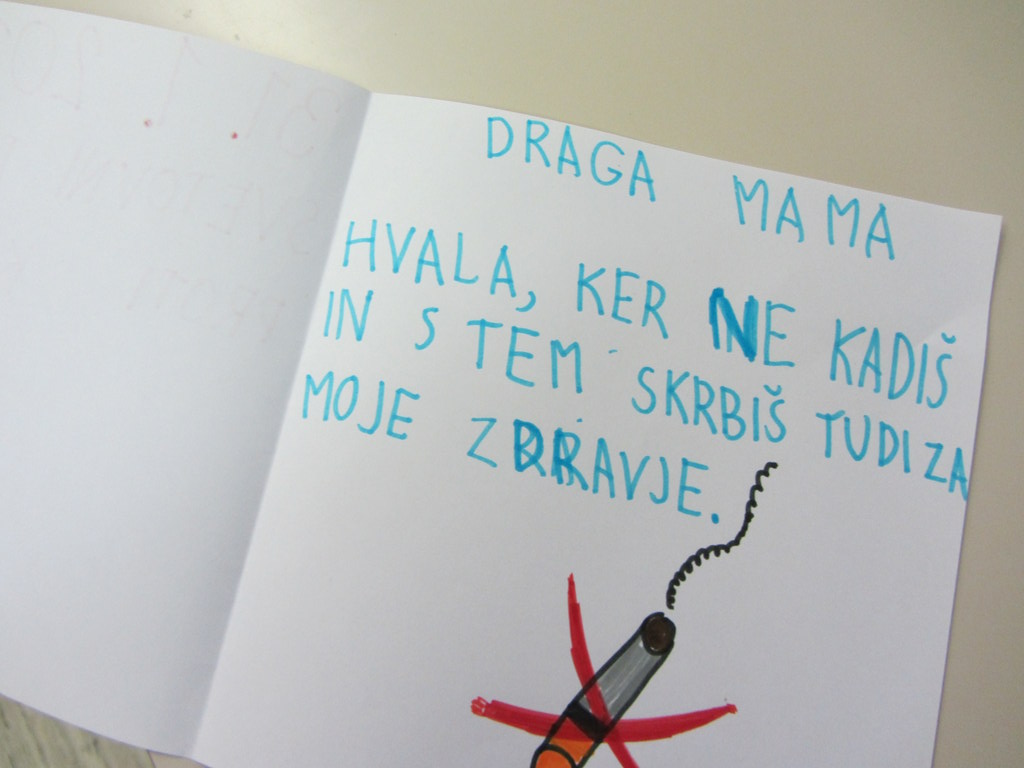 DRAGA MAMA
HVALA, KER NE KADIŠ
IN S TEM SKRBIŠ TUDI ZA
MOJE ZDRAVJE.